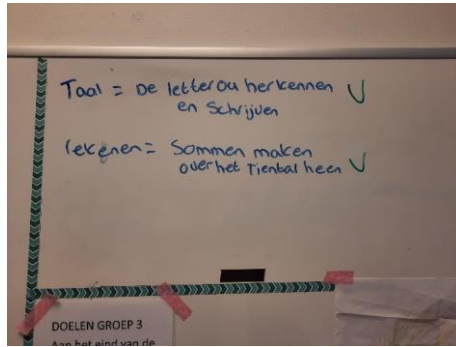 Taal = De letter ou herkennen
en Schrijven
rekenen = Sommen maken
over het Tiental heen
DOELEN GROEP 3
Aan het eind van de